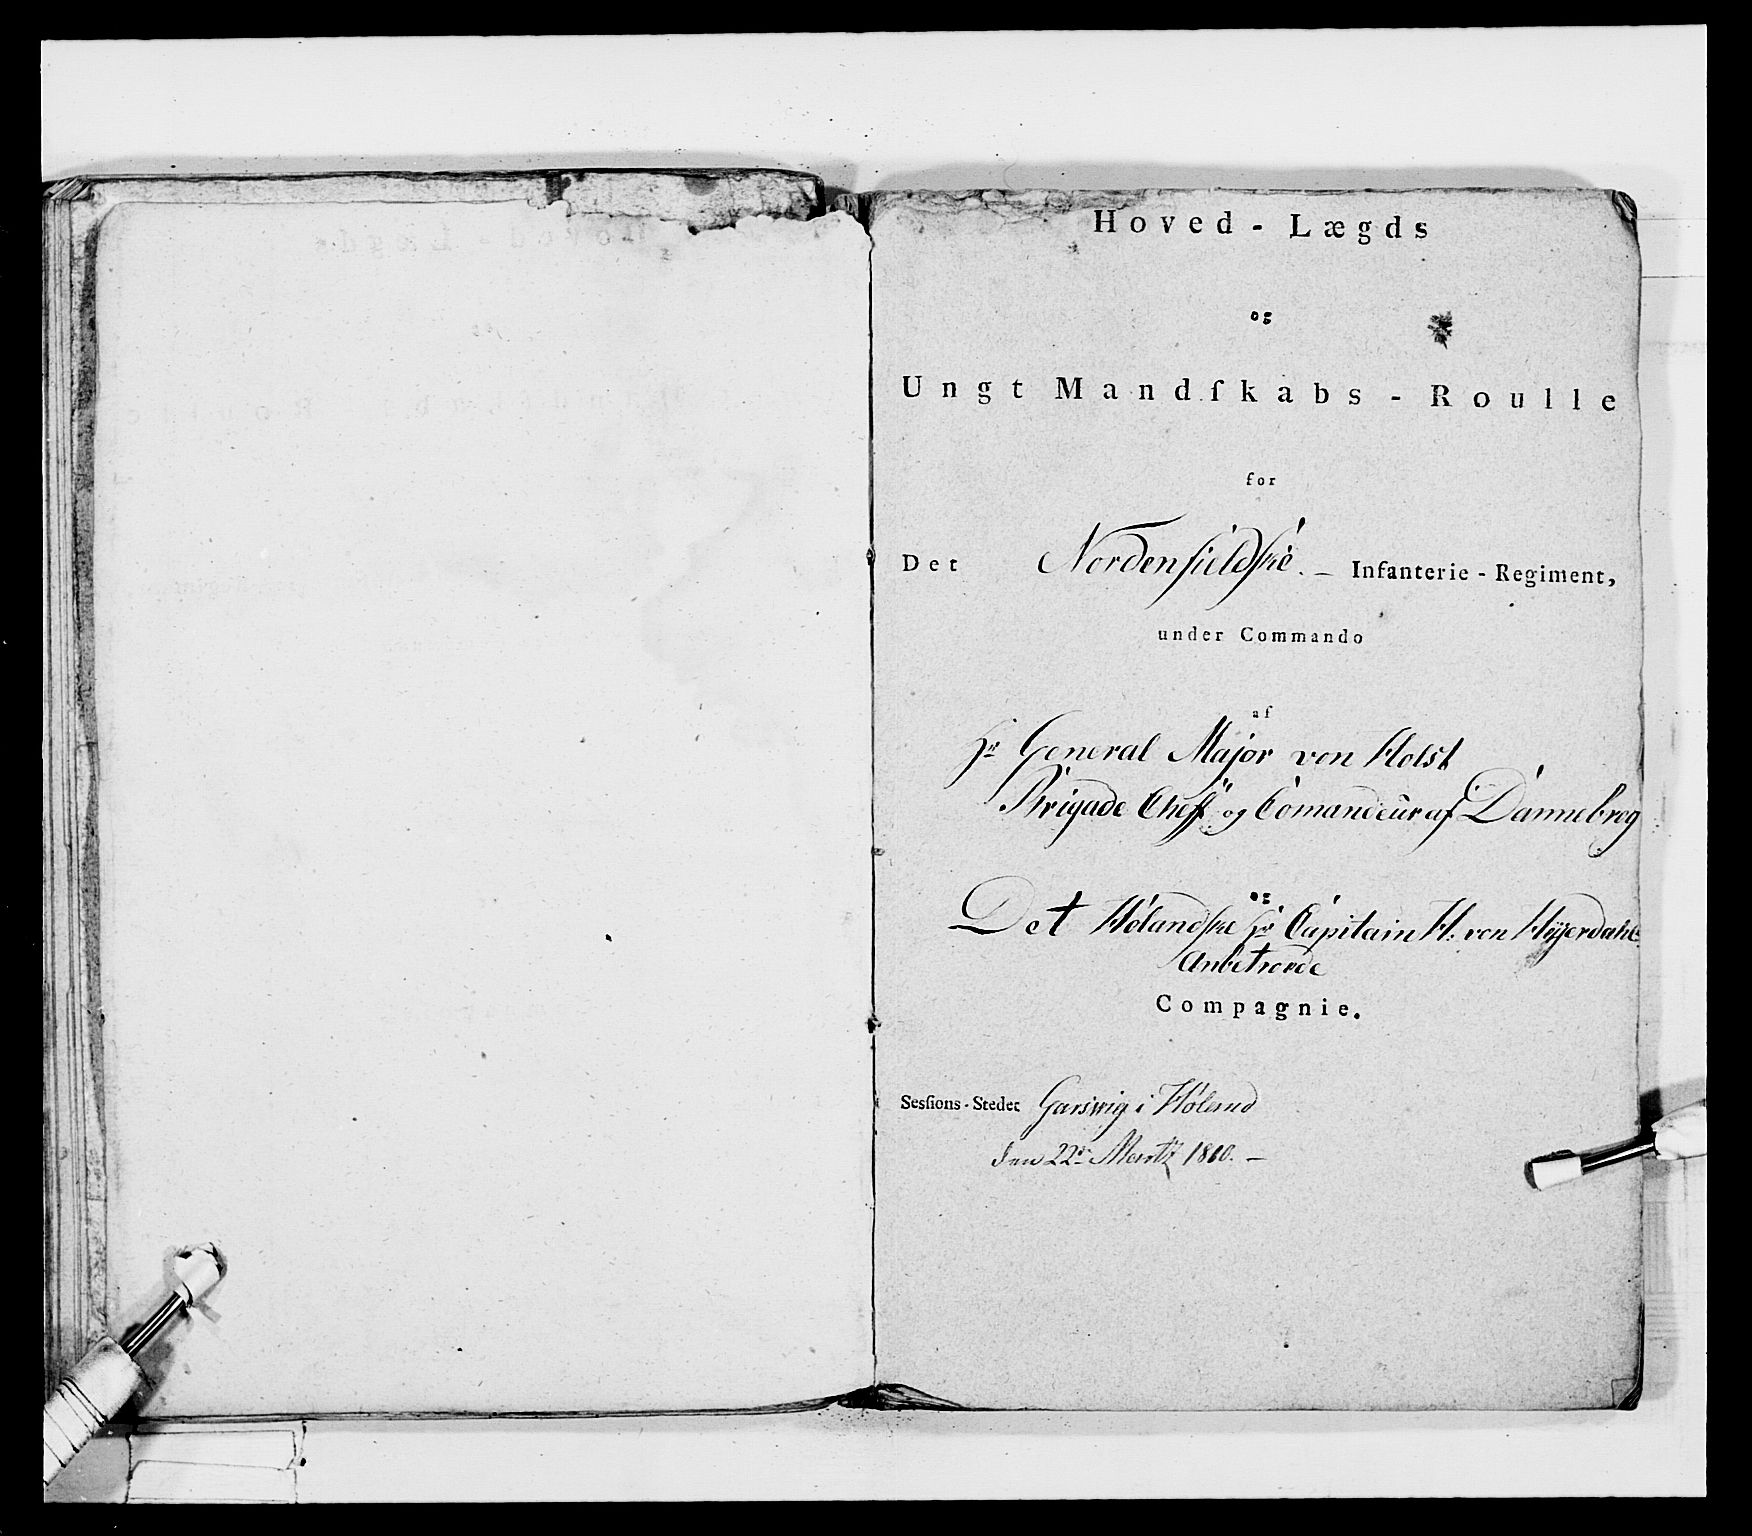 Hoved - Lægds
og
Ungt Mandſkabs - Roulle
for
Det Nordenfieldske. — Infanterie - Regiment,
under Commando
af
Hr General Major von Holst
Brigade Cheff og Comandeur af Dannebrog
og
Det Hølandske Hr Capitain H: von Hyerdahl
Anbetroede
Compagnie.
Sesſions-Stedet Garsvig i Høland
den 22de Martz 1810. —